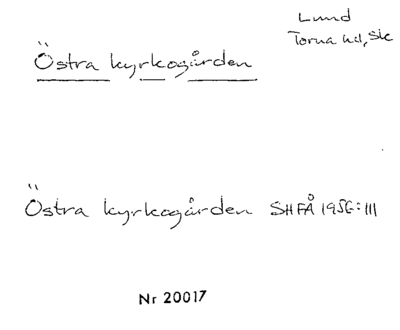 Lund
Torna hd, Sk
Östra kyrkogården
Östra kyrkogården SHFÅ 1956:111
Nr 20017